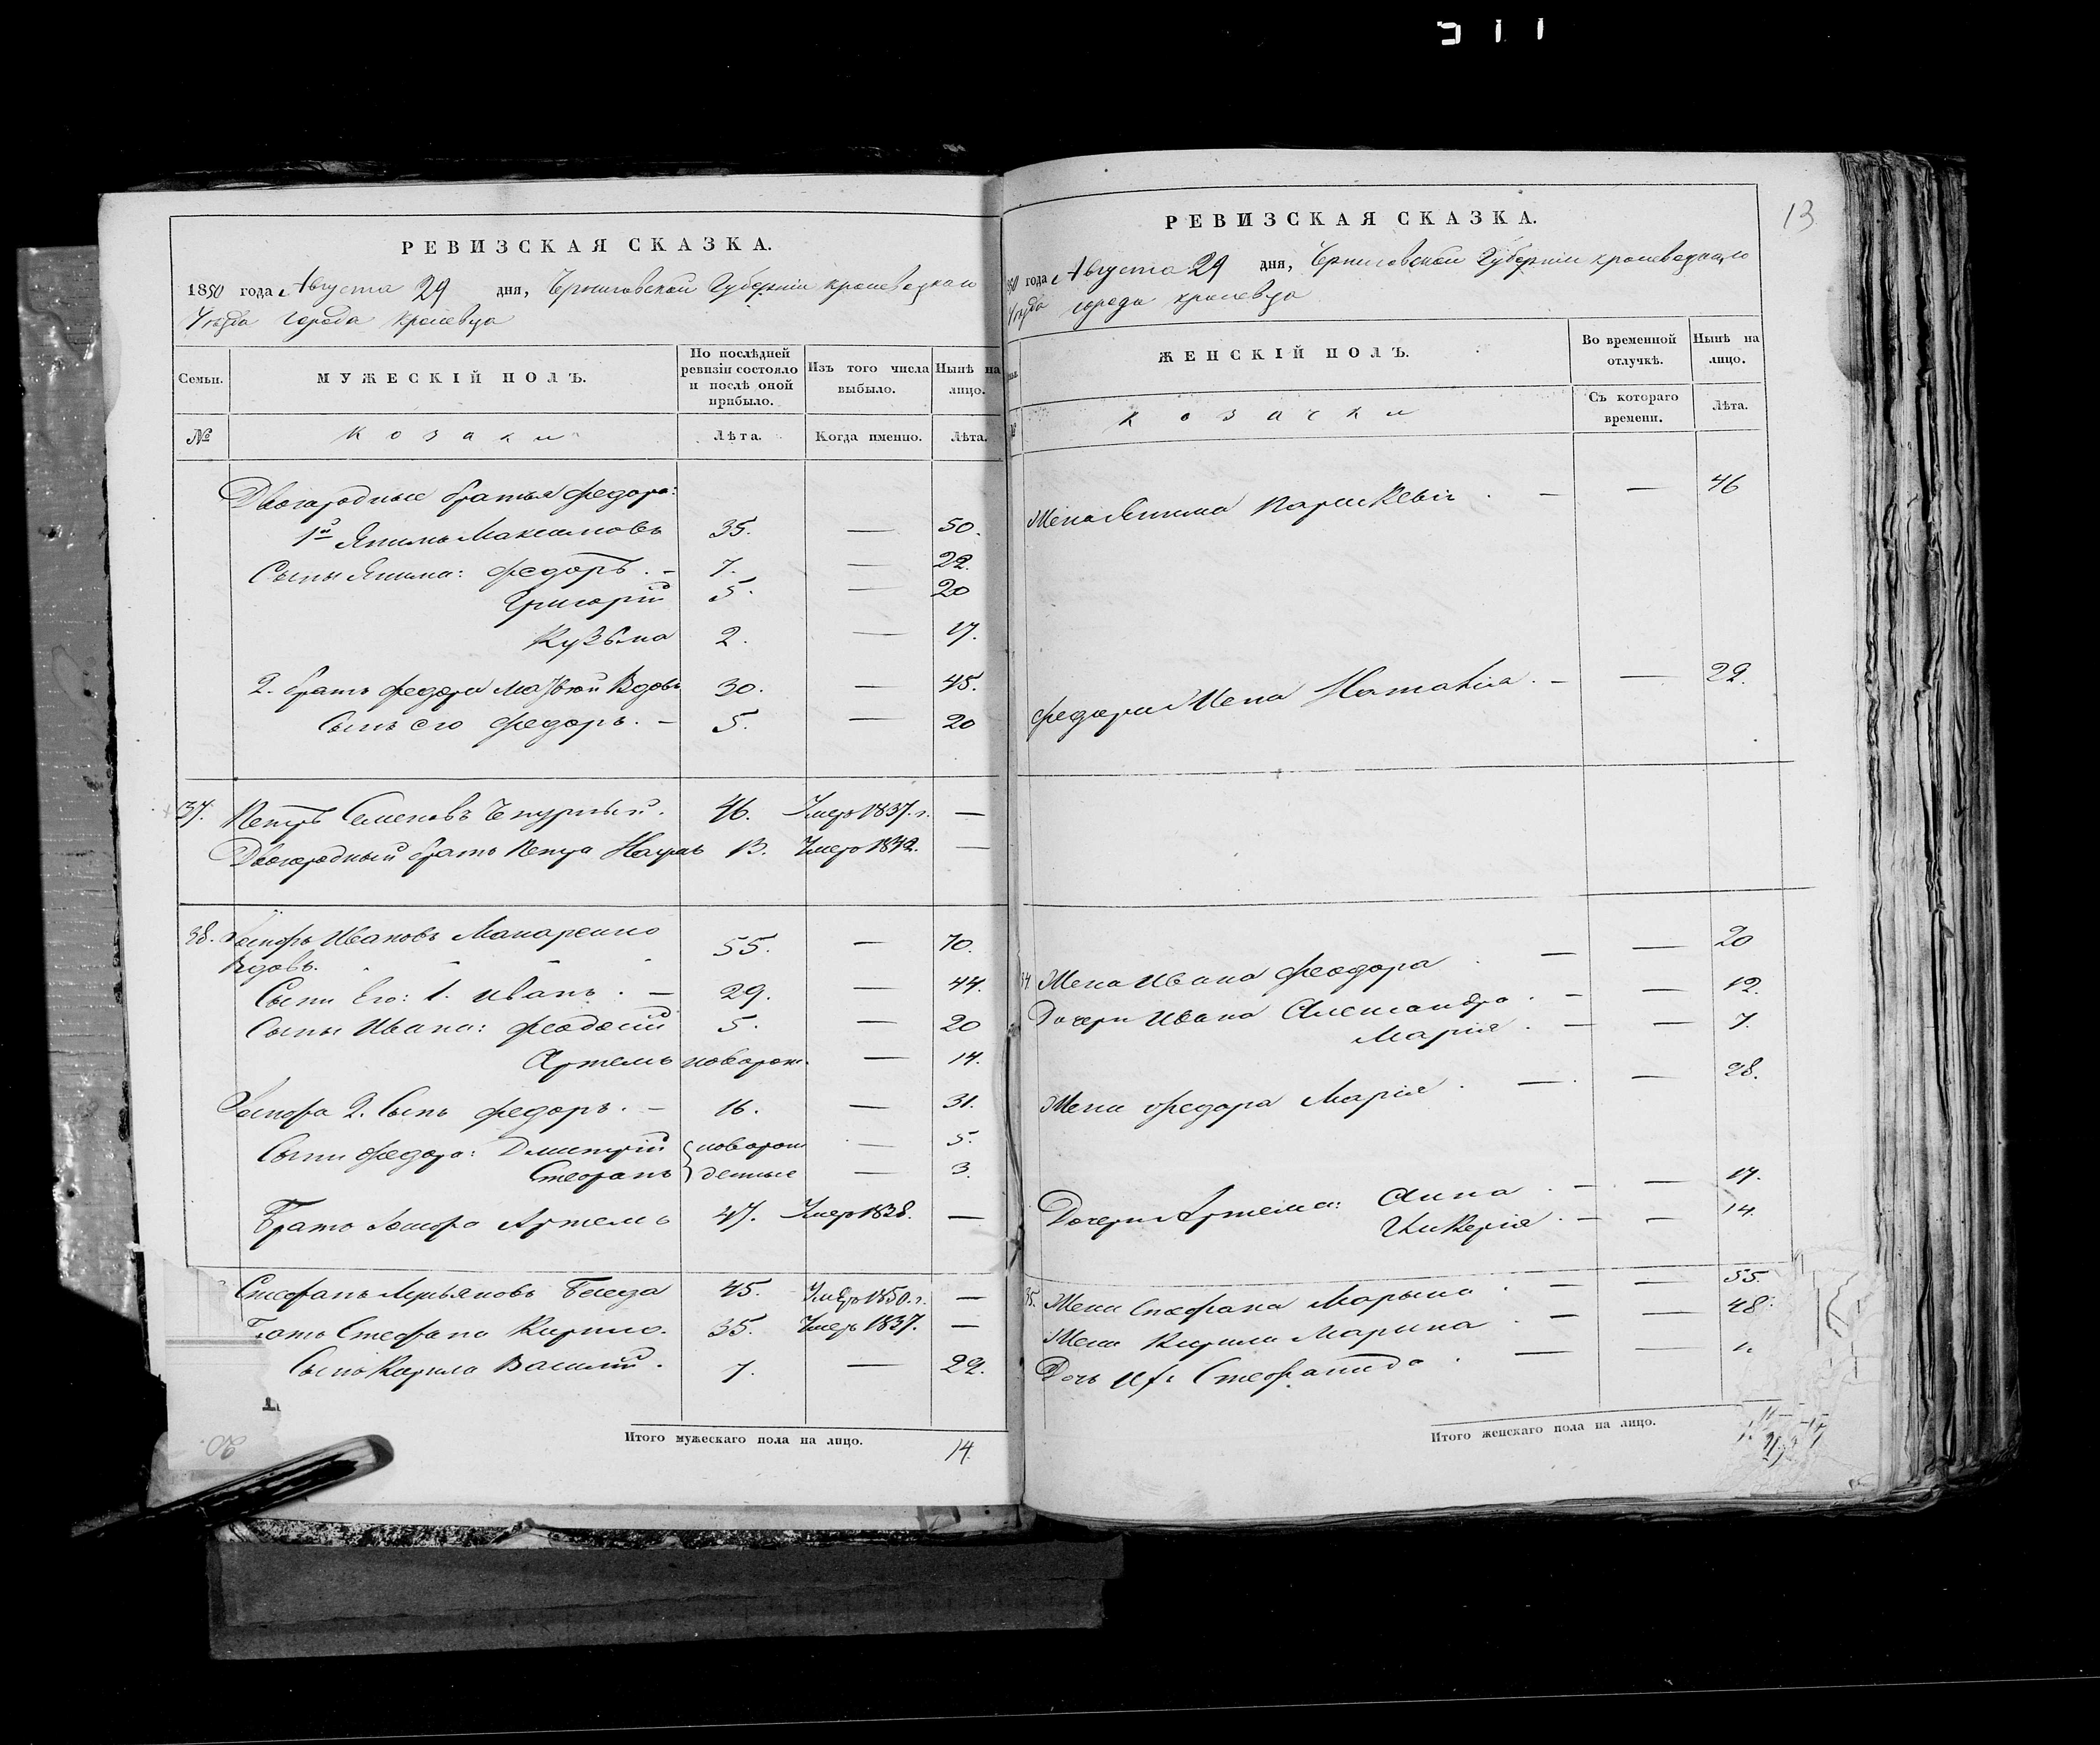 311
РЕВИЗСКАЯ СКАЗКА.
1850 года Августа 29 дня, Черниговской Губернии Кролевецкаго
Уезда города Кролевца
Семьи.
МУЖЕСКІЙ ПОЛЪ.
По послѣдней ревизіи состояло и послѣ оной прибыло.
Изъ того числа выбыло.
Нынѣ на лицо.
№
Козаки
Лѣта.
Когда именно.
Лѣта.
Двоюродные братья Федора:
1й Яким Максимовъ 35. — 50.
Сыны Якима: Федоръ. — 7. — 22.
Григорій 5. — 20
Кузьма 2. — 17.
2. братъ Федора Матвей Вдовъ 30. — 45.
Сынъ его Федоръ. — 5. — 20
37. Петръ Семеновъ 46. Умеръ 1837. г. —
Двоюродный братъ Петра Наумъ 13. Умеръ 1842. —
38. Ивановъ Макаренко 55. — 70.
Вдовъ.
Сыны Его: 1. Иванъ. — 29. — 44.
Сыны Ивана: Феодосій 5. — 20
Артемъ новорож. — 14.
2. Сынъ Федоръ. — 16. — 31.
Сыны Федора: Дмитрій новорож — 5.
Стефанъ денные — 3.
Братъ Артемъ 47. Умеръ 1838. —
Стефанъ Лукьяновъ Беседа 45. Умеръ 1850. г. —
Братъ Стефана Кирило. 35. Умеръ 1837. —
Сынъ Кирила Василій. 7. — 22.
Итого мужескаго пола на лицо. 14.
13
РЕВИЗСКАЯ СКАЗКА.
года Августа 29 дня, Черниговской Губерніи Кролевецкаго
Уезда города Кролевца
ЖЕНСКІЙ ПОЛЪ.
Во временной отлучкѣ.
Нынѣ на лицо.
Козачки
Съ котораго времени.
Лѣта.
Жена Якима Параскевія . — — 46
Федора Жена Наталія . — — 22.
34 Жена Ивана Феодора . — — 20
Дочери Ивана Александра . — — 12.
Марія . — — 7.
Жена Федора Марія . — — 28.
Дочери Артема: Анна . — — 17.
Гликерія . — — 14.
35. Жена Стефана Марына . — — 55.
Жена Кирила Марина . — — 48.
Дочь их Стефанида . — —
Итого женскаго пола на лицо.